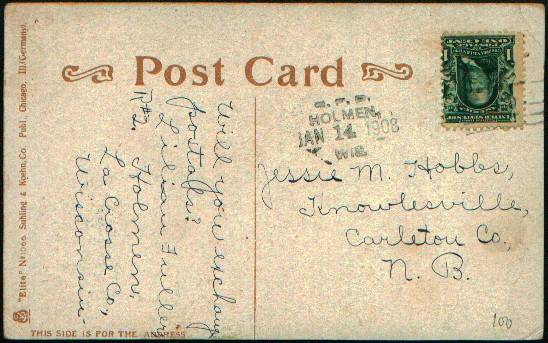 Post Card
R.F.D.
HOLMEN,
JAN 14 1908
WIS.
1
Will you exchange
postals?
Lilian Fuller
R#2. Holmen,
La Crosse Co.,
Wisconsin.
Jessie M. Hobbs,
Knowlesville,
Carleton Co.,
N. B.
100
"Elite" No 1066 Sahling & Koehn, Co. Publ. Chicago, Ill/Germany.
THIS SIDE IS FOR THE ADDRESS